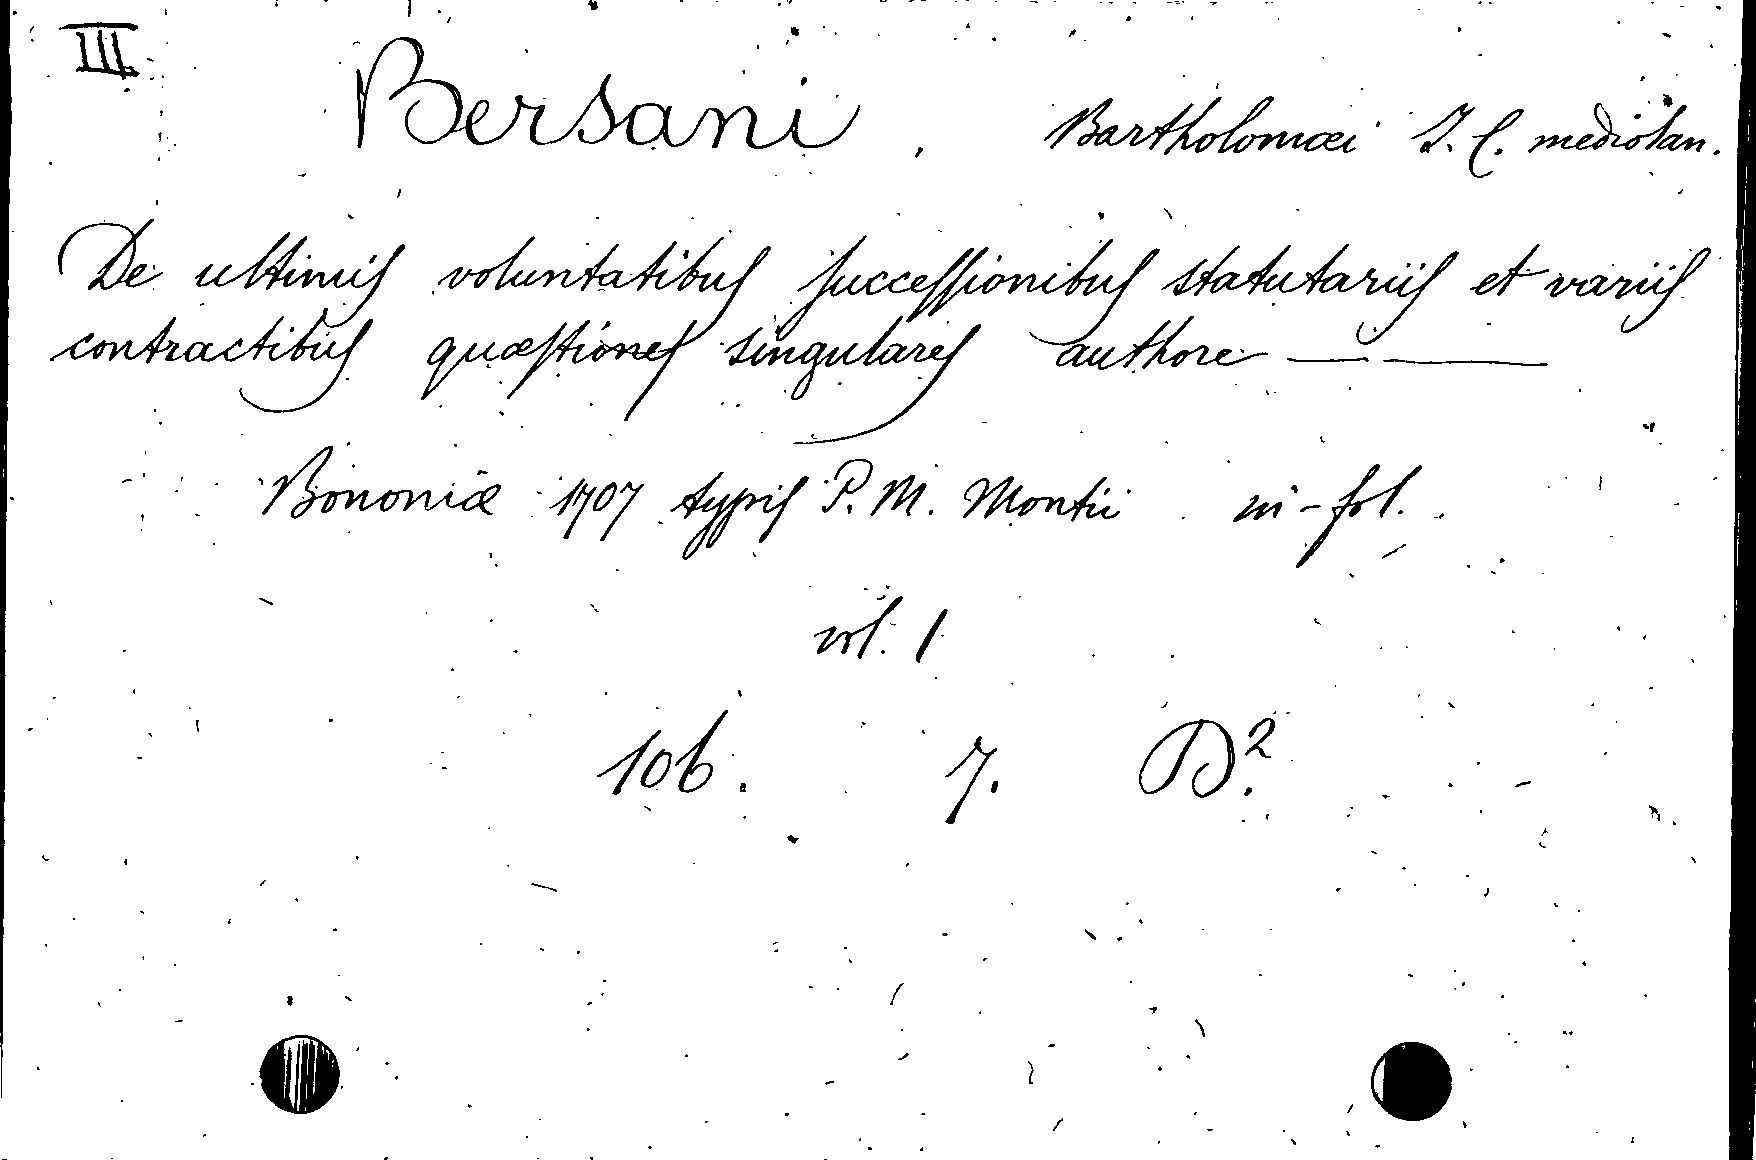 III
Bersani, Bartholomæi J. C. mediolan.
De ultimis voluntatibus successionibus statutariis et variis
contractibus quæstiones singulares authore — ——
Bononiæ 1707 typis P. M. Montii in-fol.
vol. 1
106. 7. D².